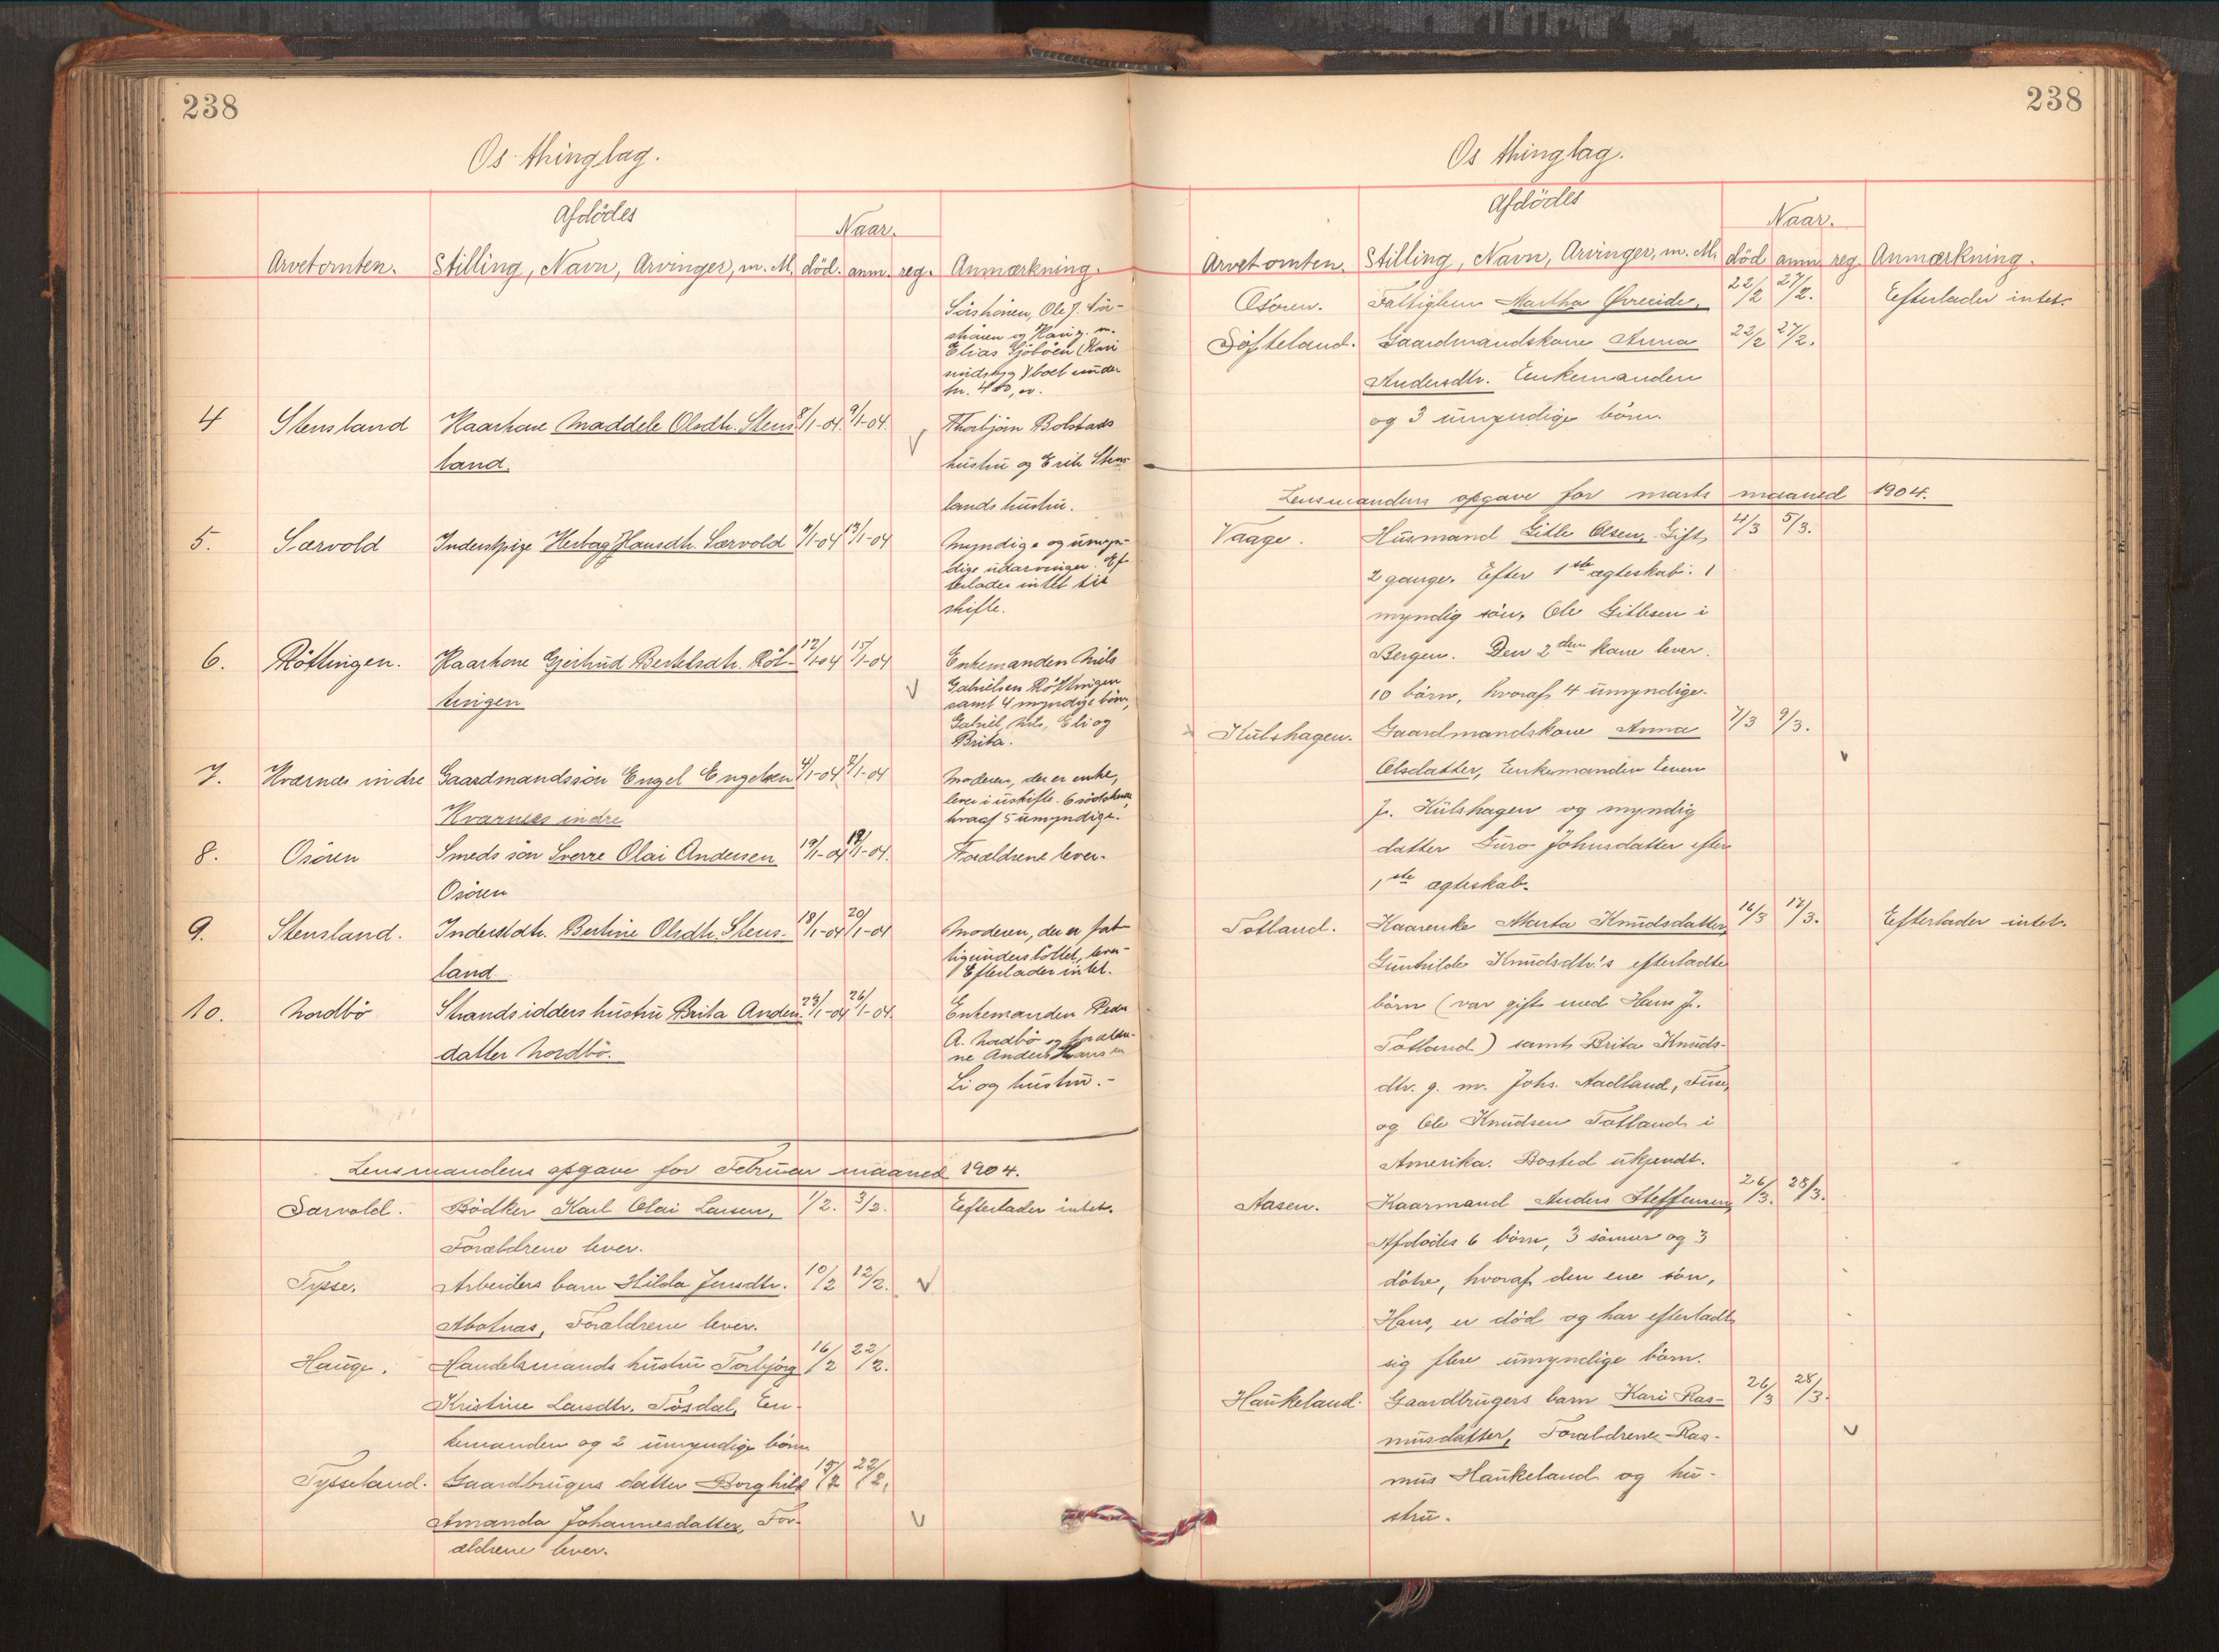 238
Os thinglag.
Afdödes
Naar.
Arvetomten. Stilling, Navn, Arvinger, m. M. död. anm. reg. Anmærkning.
Ole J.
og
Elias Gjöböen (Kari
boet under
kr. 400, 
4 Stensland Kaarkone Maddele Olsdtr. Stens- 8/1-04. 9/1-04. Thorbjörn Bolstads
land. hustru og Erik Stens-
lands hustru.
5. Særvold Inderstpige Herborg Hansdtr. Særvold 11/1-04 13/1-04 Myndige og umyn-
dige udarvinger. Ef-
terlader intet til
skifte.
6. Röttingen. Kaarkone Gjertrud Bertelsdtr. Röt- 12/1-04 15/1-04 Enkemanden Nils
tingen Gabrielsen Röttingen
samt 4 myndige börn,
Gabriel, Nils, Eli og
Brita.
7. Kværnes indre Gaardmandssön Engel Engelsen 4/1-04. 7/1-04 Moderen, der er enke,
Kværnes indre lever i uskifte. 6 södskende,
hvoraf 5 umyndige.
8. Osören Smeds sön Sverre Olai Andersen 19/1-04 19/1-04. Forældrene lever.
Osören
9. Stensland. Inderstdtr. Bertine Olsdtr. Stens- 18/1-04 20/1-04 Moderen, der er fat-
land tigunderstöttet, lever.
Efterlader intet.
10. Nordbö Strandsidders hustru Brita Anders- 23/1-04 26/1-04. Enkemanden Peder
datter Nordbö. A. Nordbö og forældre-
ne Anders Hansen
Li og hustru.-
Lensmandens opgave for Februar maaned 1904.
Særvold. Bödker Karl Olai Larsen, 1/2. 3/2. Efterlader intet.
Forældrene lever.
Tysse. Arbeiders barn Hilda Jensdtr. 10/2 12/2.
Forældrene lever.
Hauge. Handelsmands hustru Torbjörg 16/2 22/2.
Kristine Larsdtr. Tösdal, En-
kemanden og 2 umyndige börn
Tysseland. Gaardbrugers datter Borghild 15/2 22/2.
Amanda Johannesdatter, For-
ældrene lever.
238
Os thinglag.
Afdödes
Naar.
Arvetomten. Stilling, Navn, Arvinger, m. M. död anm reg. Anmærkning.
Osören. Fattiglem Martha Øvreeide, 22/2 27/2. Efterlader intet.
Söfteland. Gaardmandskone Anna 22/2 27/2.
Andersdtr. Enkemanden
og 3 umyndige börn.
Lensmandens opgave for marts maaned 1904.
Vaage. Husmand Gitle Olsen, Gift, 4/3 5/3.
2 gange. Efter 1ste ægteskab: 1
myndig sön, Ole Gitlesen i
Bergen. Den 2den kone lever.
10 börn, hvoraf 4 umyndige.
Kulshagen. Gaardmandskone Anna 7/3 9/3.
Olsdatter, Enkemanden
J. Kulshagen og myndig
datter Guro Johnsdatter efter
1ste ægteskab.
Totland. Kaarenke Marta Knudsdatter, 16/3 17/3. Efterlader intet.
Gunhilde Knudsdtr.'s efterladte
börn (var gift med Hans J.
Totland) samt Brita Knuds-
dtr. g. m. Johs. Aadland, Fuse,
og Ole Knudsen Totland i
Amerika. Bosted ukjendt.
Aasen. Kaarmand Anders Steffensen, 26/3. 28/3.
Afdödes 6 börn, 3 sönner og 3
dötre, hvoraf den ene sön,
Hans, er död og har efterladt
sig flere umyndige börn.
Haukeland. Gaardbrugers barn Kari Ras- 26/3 28/3.
musdatter, Forældrene Ras-
mus Haukeland og hu-
stru.